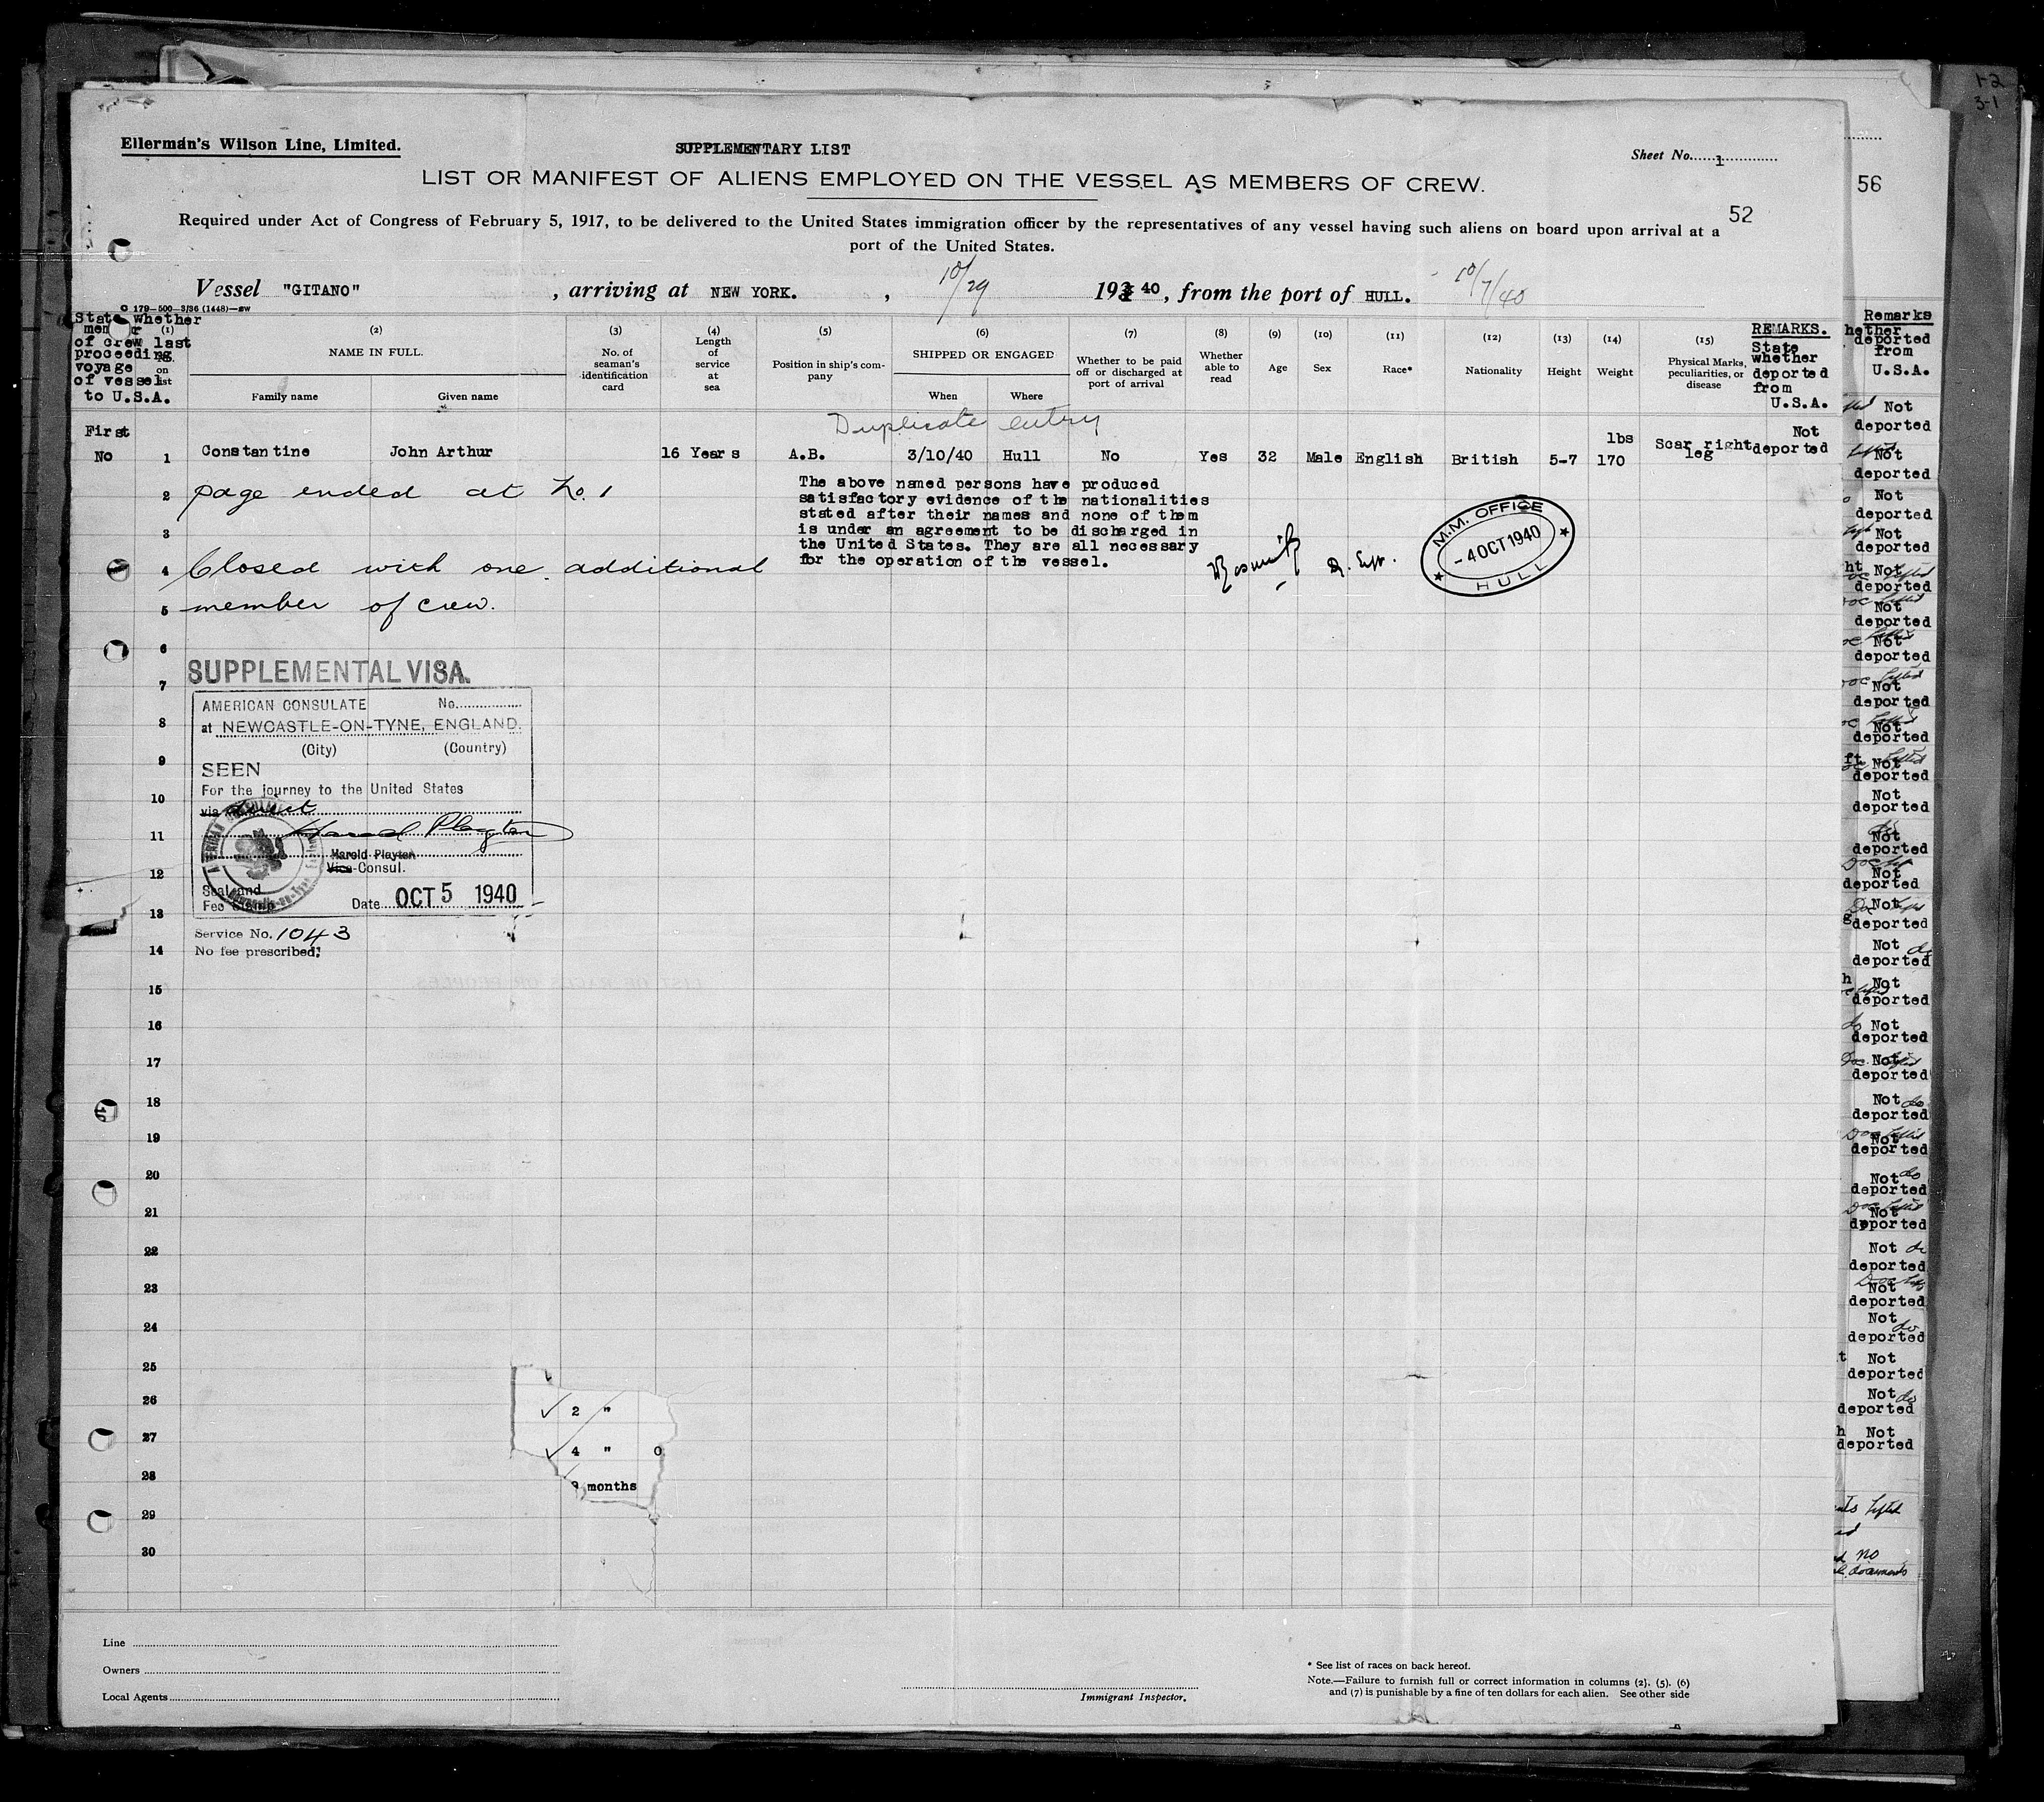 1-2
3-1
Ellerman's Wilson Line, Limited.
SUPPLEMENTARY LIST
Sheet No. 1
LIST OR MANIFEST OF ALIENS EMPLOYED ON THE VESSEL AS MEMBERS OF CREW.
56
52
Required under Act of Congress of February 5, 1917, to be delivered to the United States immigration officer by the representatives of any vessel having such aliens on board upon arrival at a
port of the United States.
Vessel "GITANO", arriving at NEW YORK., 10/29 193 40, from the port of HULL. 10/7/40
C 179-500-3/36 (1448)
State whether
member
of crew last
proceeding
voyage
of vessel
to U.S.A.
(1)
No.
on
list
(2)
NAME IN FULL.
Family name Given name
(3)
No. of
seaman's
identification
card
(4)
Length
of
service
at
sea
(5)
Position in ship's com-
pany
(6)
SHIPPED OR ENGAGED
When Where
(7)
Whether to be paid
off or discharged at
port of arrival
(8)
Whether
able to
read
(9)
Age
(10)
Sex
(11)
Race*
(12)
Nationality
(13)
Height
(14)
Weight
(15)
Physical Marks,
peculiarities, or
disease
REMARKS.
State
whether
deported
from
U.S.A.
Duplicate entry
First
No 1 Constantine John Arthur 16 Years A.B. 3/10/40 Hull No Yes 32 Male English British 5-7 170 lbs Scar right leg Not deported
2 page ended at No. 1
3
4 Closed with one additional
5 member of crew.
The above named persons have produced
satisfactory evidence of the nationalities
stated after their names and none of them
is under an agreement to be discharged in
the United States. They are all necessary
for the operation of the vessel.
M.M. OFFICE
- 4 OCT 1940
HULL
6
SUPPLEMENTAL VISA.
7
AMERICAN CONSULATE No.
8
at NEWCASTLE-ON-TYNE, ENGLAND.
(City) (Country)
9
SEEN
For the journey to the United States
10
via direct
11
Harold Playter
Harold Playter
Vice-Consul.
12
Seal and
Fee Stamp
Date OCT 5 1940
13
Service No. 1043
14
No fee prescribed:
15
16
17
18
19
20
21
22
23
24
25
26
27
28
29
30
2 "
4 " 0
months
Remarks
whether
deported
from
U.S.A.
Not
deported
Not
deported
Not
deported
Not
deported
Not
deported
Not
deported
Not
deported
Not
deported
Not
deported
Not
deported
Not
deported
Not
deported
Not
deported
Not
deported
Not
deported
Not
deported
Not
deported
Not
deported
Not
deported
Not
deported
Not
deported
Not
deported
Not
deported
Not
deported
Not
deported
Not
deported
Not
deported
Not
deported
lifted
no
documents
Line
Owners
Local Agents
Immigrant Inspector.
* See list of races on back hereof.
Note.—Failure to furnish full or correct information in columns (2), (5), (6)
and (7) is punishable by a fine of ten dollars for each alien. See other side